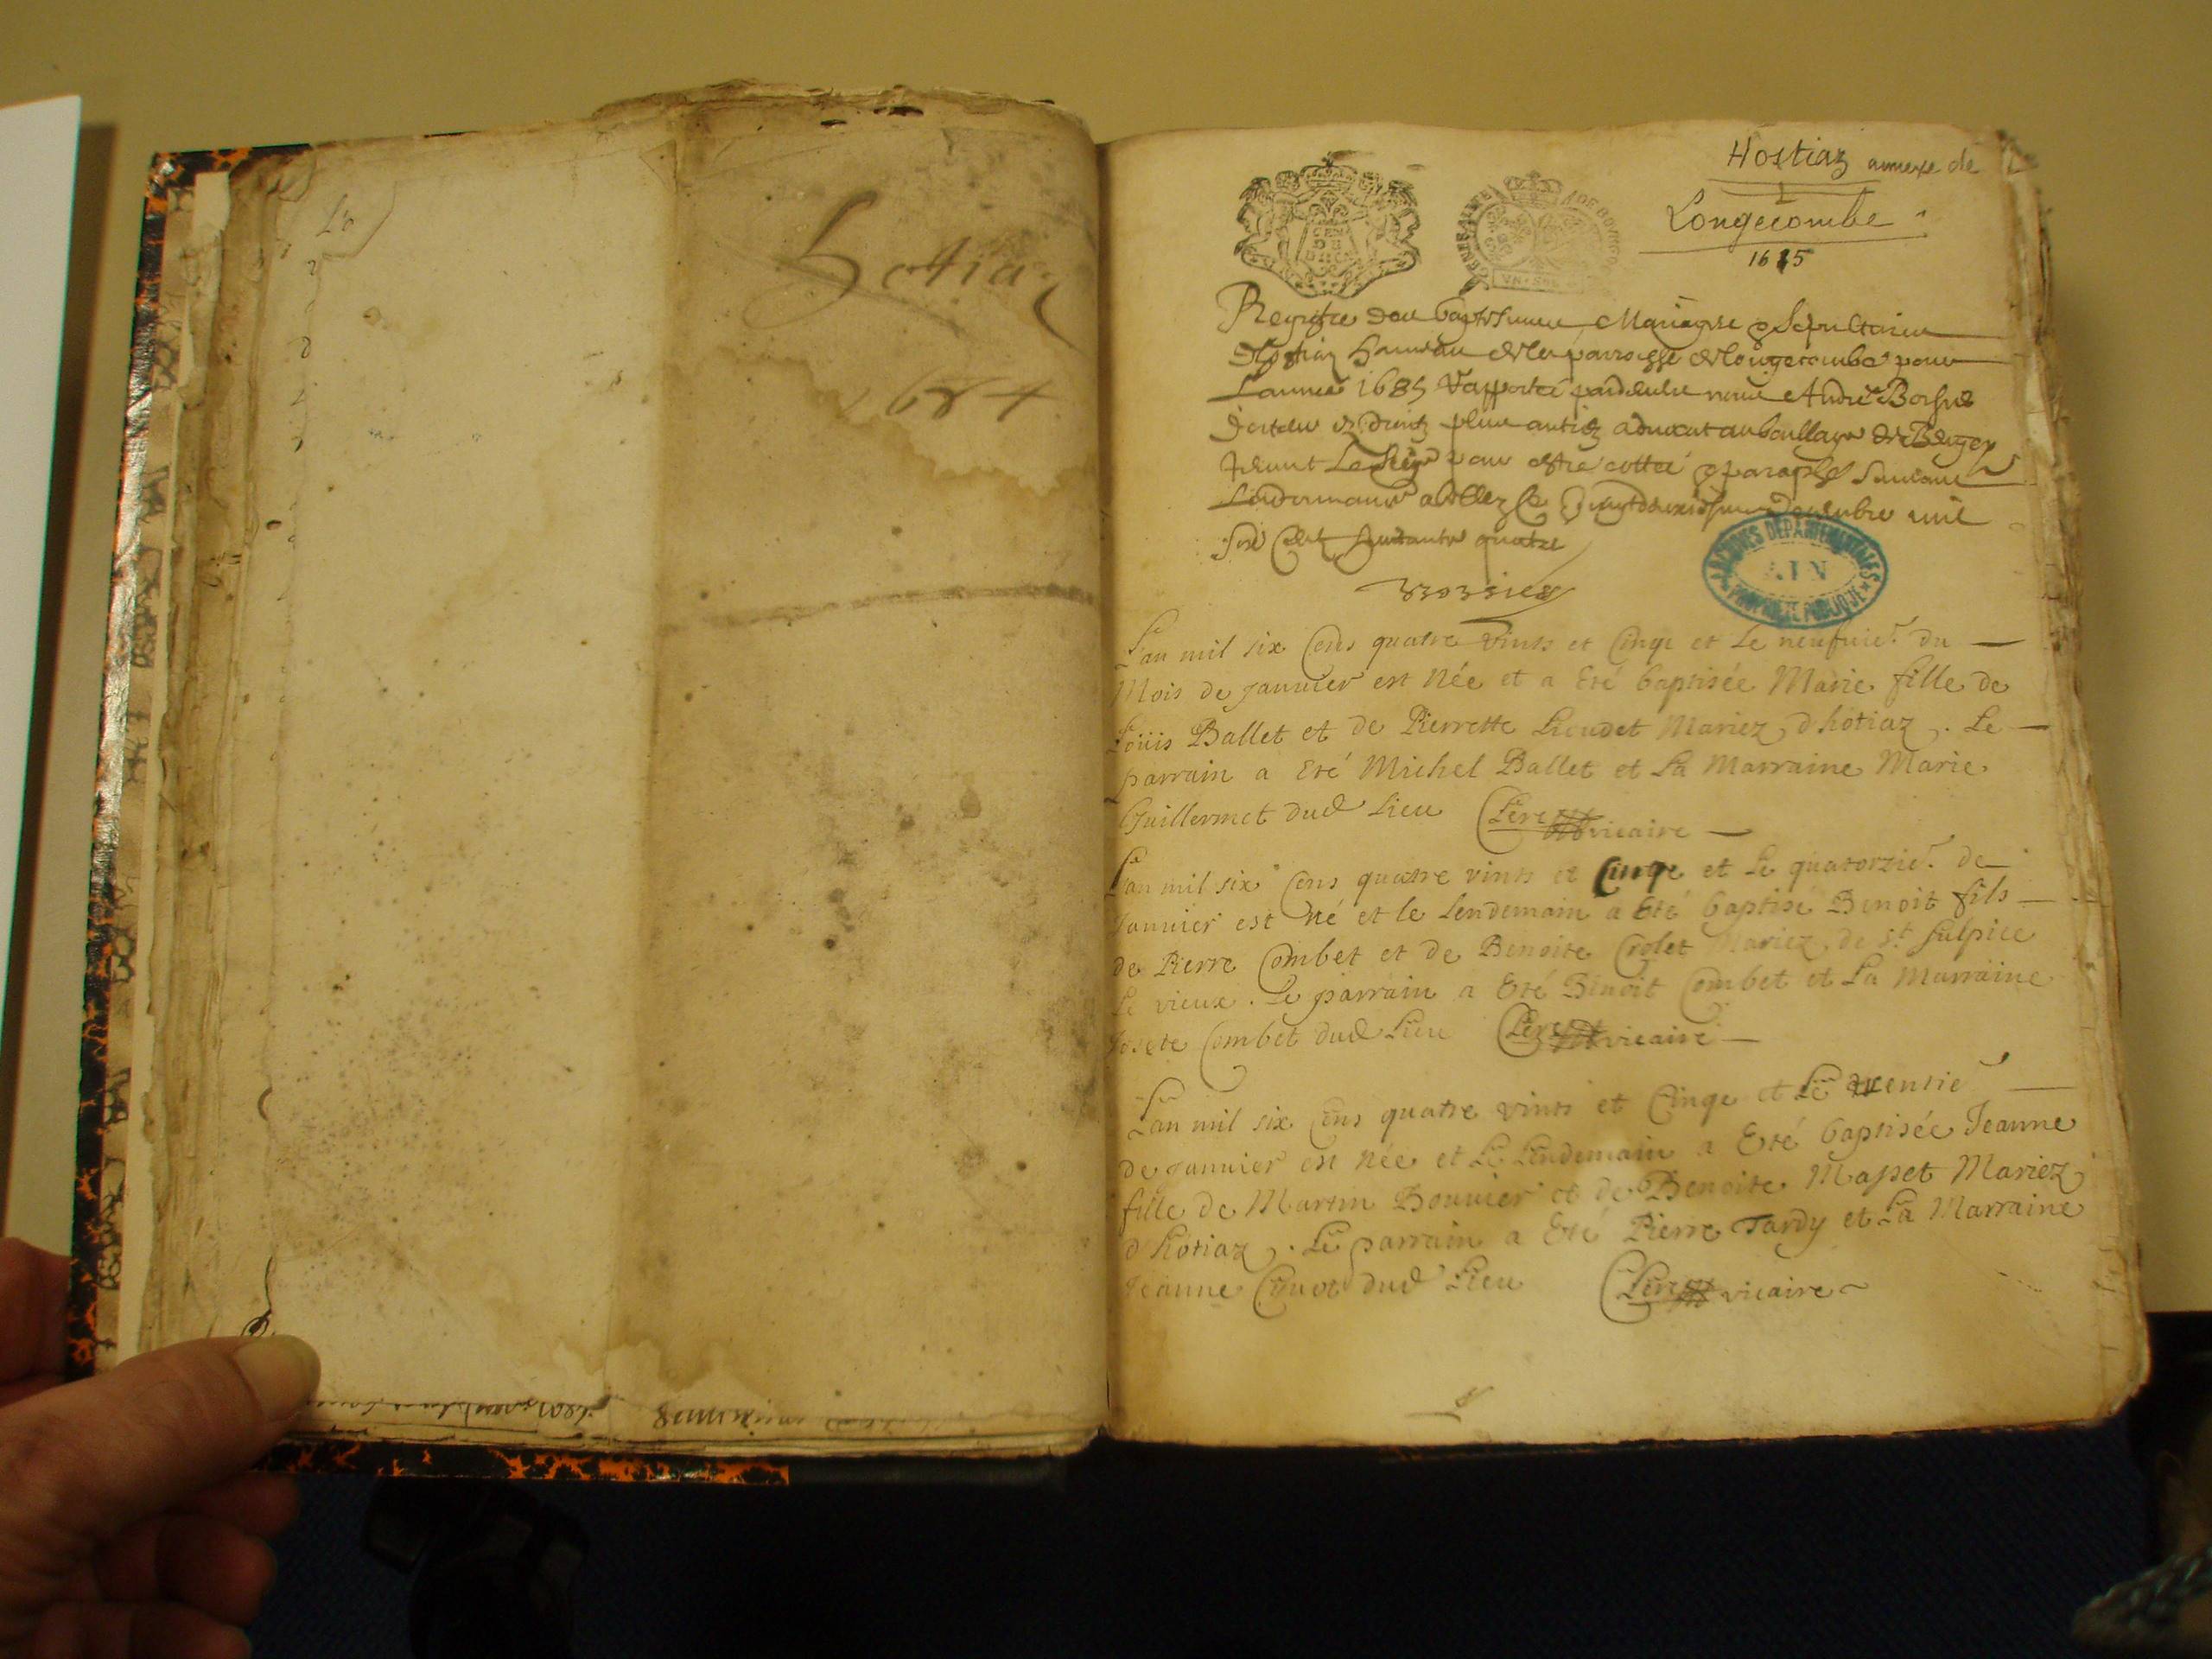 hotiaz
1684
Hostiaz annexe de
Longecombe
1685
GENERALITE DE BOVRGO
Registre des baptesmes Mariages & Sepultures
d'hostiaz hameau de la parroisse de Longecombe pour
L'année 1685 Rapporté par devant nous André
docteur ez droitz plus antien advocat au bailliage de Bugey
pour estre cotté & paraphé
le vingt deuxiesme decembre mil
six cent huitante quatre
ARCHIVES DEPARTEMENTALES
AIN
PROPRIETE PUBLIQUE
L'an mil six cens quatre vints et Cinqe et Le neufuie. du
Mois de januier est Née et a Eté baptisée Marie fille de
Loüis Ballet et de Pierrette Lieudet Mariez d'hôtiaz. Le
parrain a Eté Michel Ballet et La Marraine Marie
Guillermet dud Lieu vicaire
L'an mil six cens quatre vints et Cinqe et Le quatorzie. de
Januier est né et le Lendemain a Eté baptisé Benoit fils
de Pierre Combet et de Benoite Crolet Mariez de St. Sulpice
Le vieux. Le parrain a Eté Benoit Combet et La Marraine
Combet dud Lieu vicaire
L'an mil six cens quatre vints et Cinqe et Le trentie
de januier est Née et Le Lendemain a Eté baptisée Jeanne
fille de Martin Bouuier et de Benoite Masset Mariez
d'hôtiaz. Le parrain a Eté Pierre Tardy et La Marraine
Jeanne dud Lieu vicaire